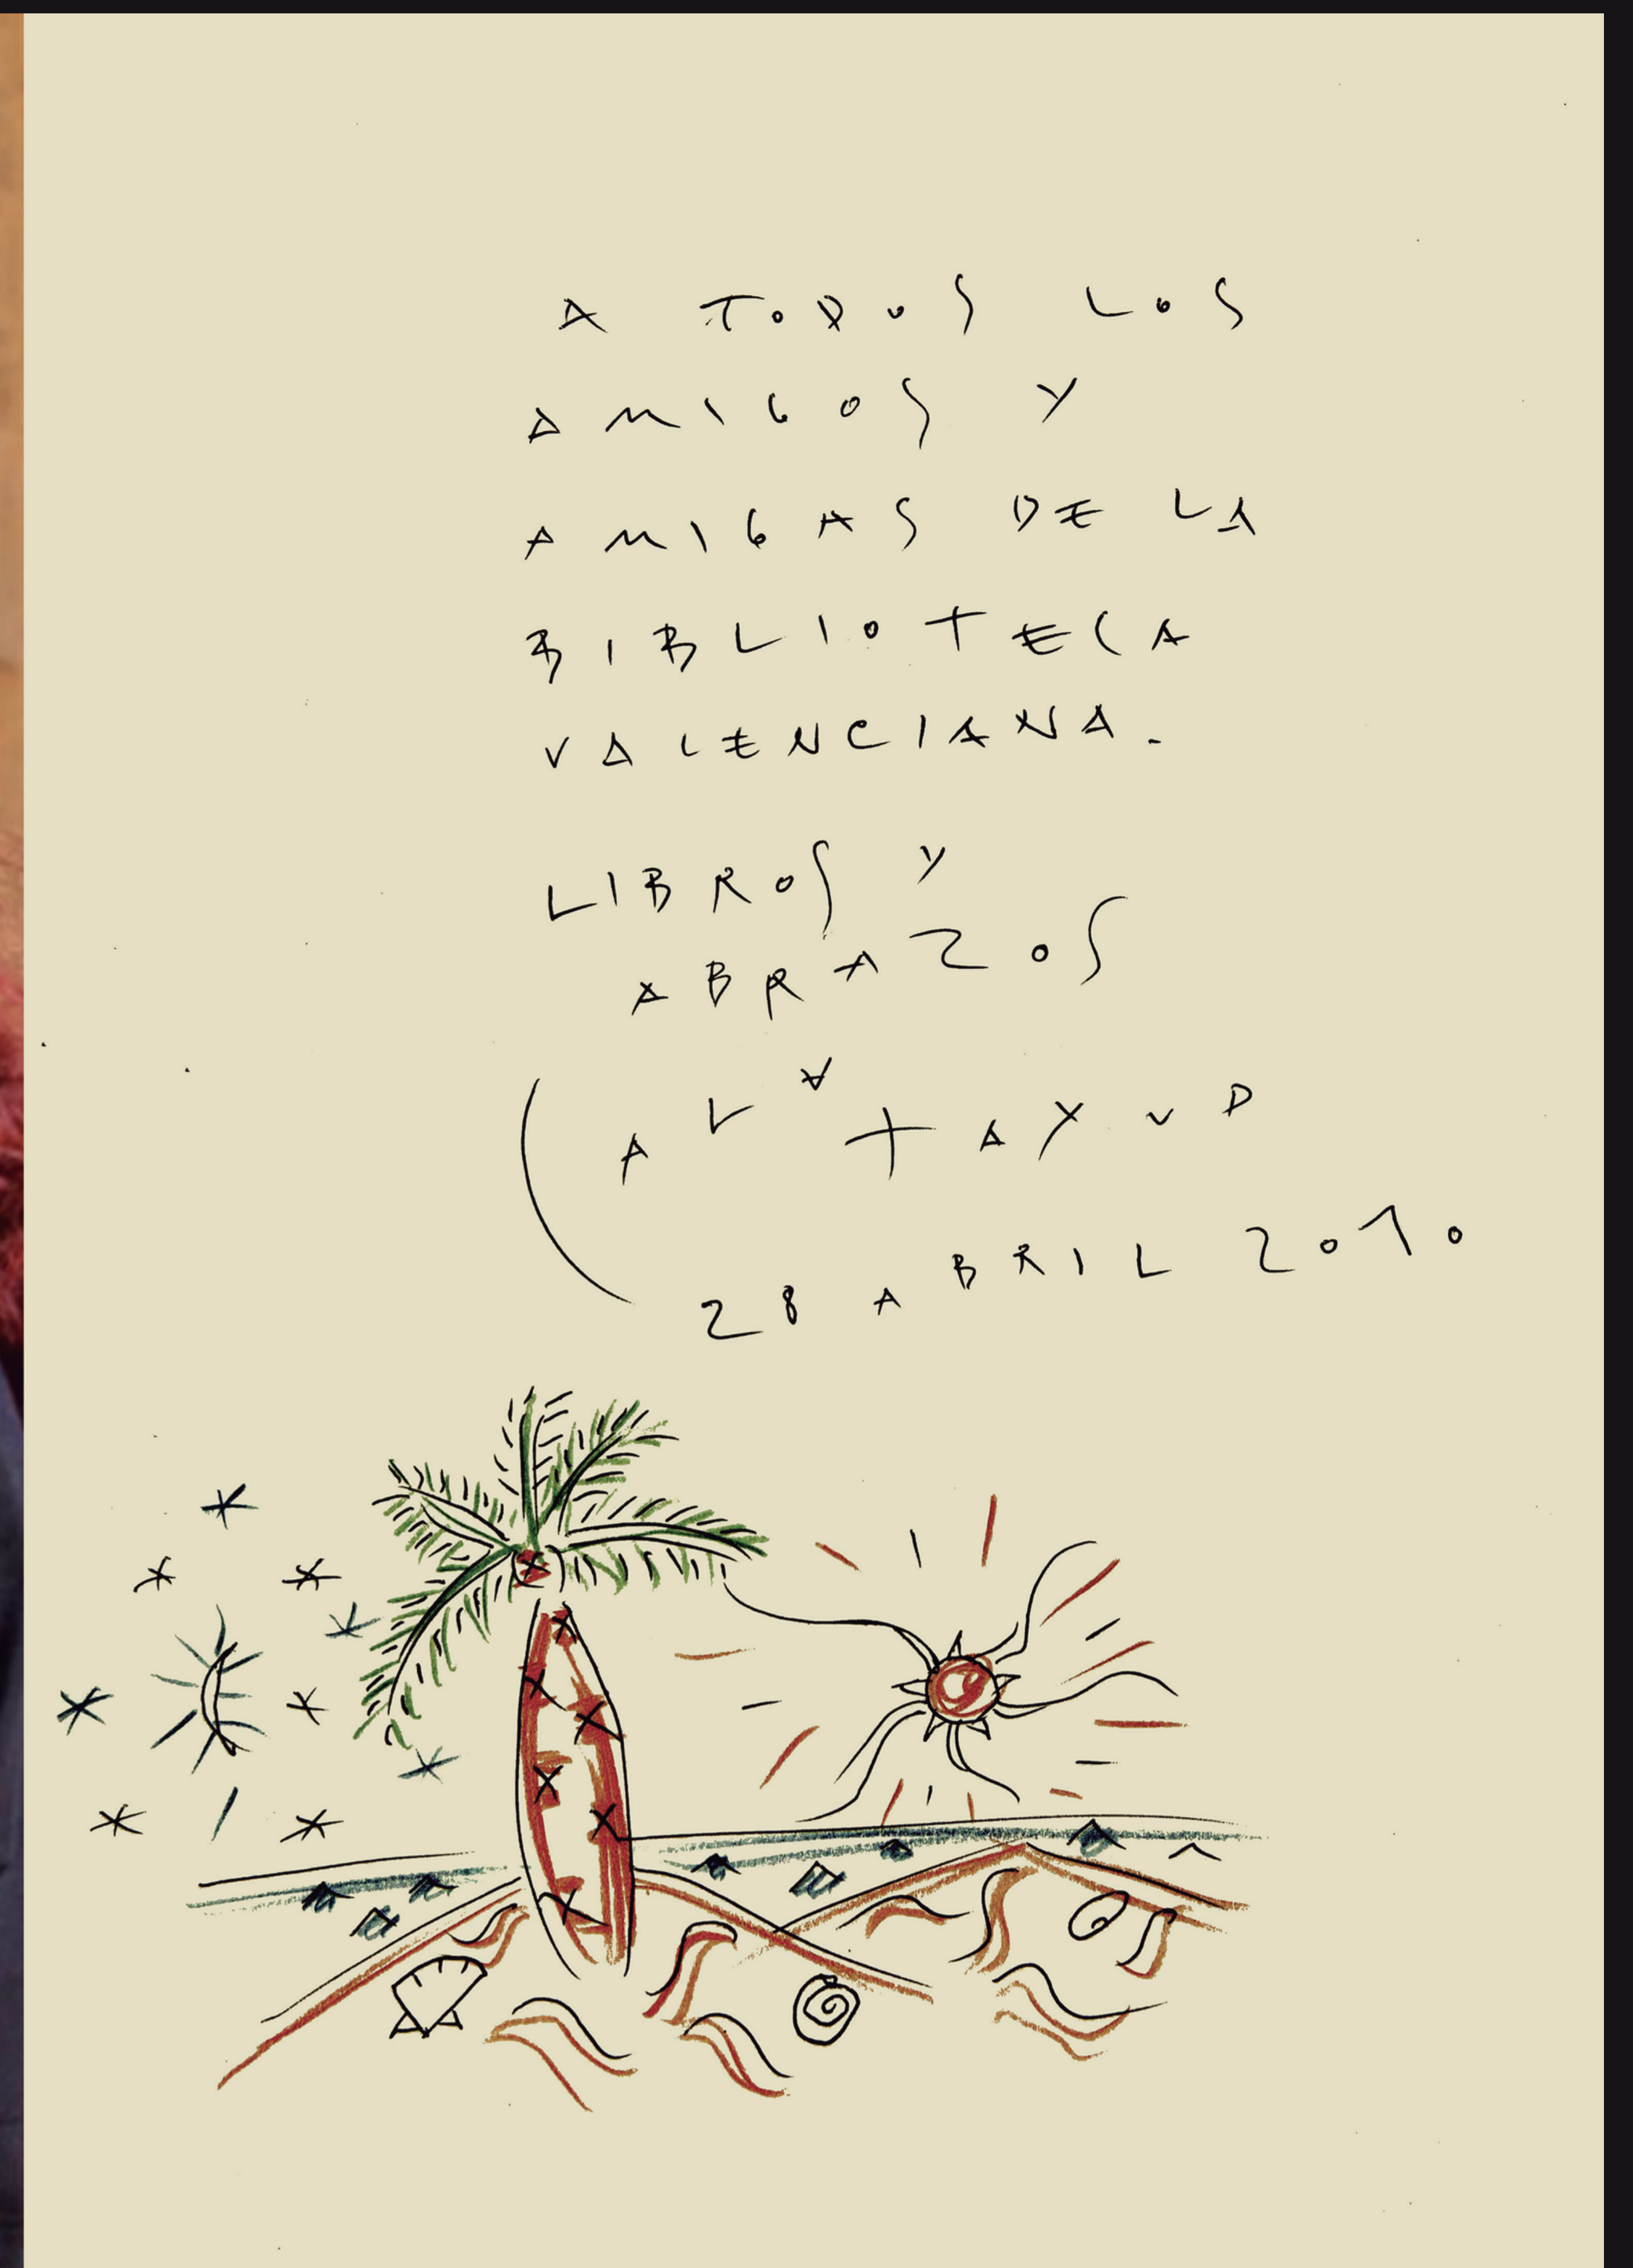 A TODOS LOS
AMIGOS Y
AMIGAS DE LA
BIBLIOTECA
VALENCIANA.
LIBROS Y
ABRAZOS
CALATAYUD
28 ABRIL 2010